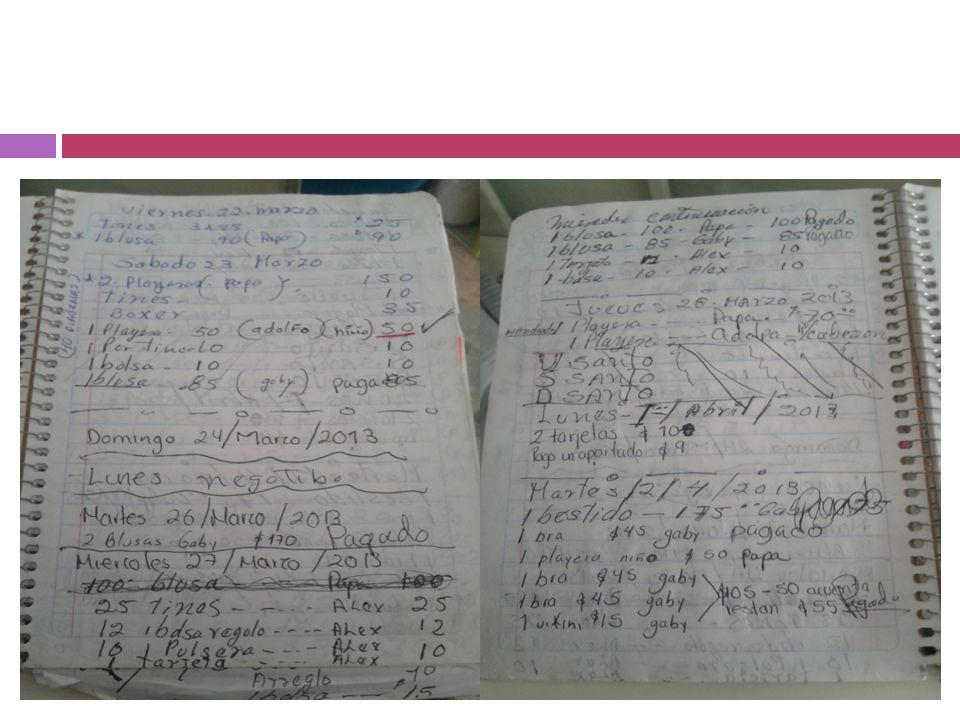 Viernes 22 marzo
Tines 3x25 $ 25
* 1 blusa - 90 (Papa) $ 90
Sabado 23 Marzo
* 2 Playeras ( Papa ) 150
Tines - 10
Boxer 35
1 Playera - 50 (adolfo)(niño) 50
1 Par tines - 10 10
1 bolsa - 10 10
1 blusa - 85 ( gaby ) pagado 85
Domingo 24/Marzo/2013
Lunes negatibo
Martes 26/Marzo/2013
2 Blusas Gaby $170 Pagado
Miercoles 27/Marzo/2013
100 - blusa Papa 100
25 Tines - - - - ALex 25
12 1 bolsa regalo - - - - ALex 12
10 1 Pulsera - - - - ALex 10
1 tarjeta - - - - ALex
Arreglo 10
bolsa - - - $15
continuacion
1 blosa - 100 - Papa - 100 Pagado
1 blusa - 85 - Gaby - 85 Pagado
1 - 12 - Alex - 10
1 bolsa - 10 - Alex - 10
Jueves 28 - Marzo 2013
1 Playera - - - Papa - $70.00
1 Playera - - - -
V SANTO
S SANTO
D SANTO
Lunes - 1 / Abril / 2013
2 tarjetas $ 10
Pago un apartado $ 9
Martes /2/4/2013
1 bestido - 175 Gaby Pagado
1 bra $45 gaby pagado
1 playera niño $50 papa
1 bra $45 gaby
1 bra $45 gaby $105 - 50 acuenta
1 vikini $15 gaby restan $55 Pagado